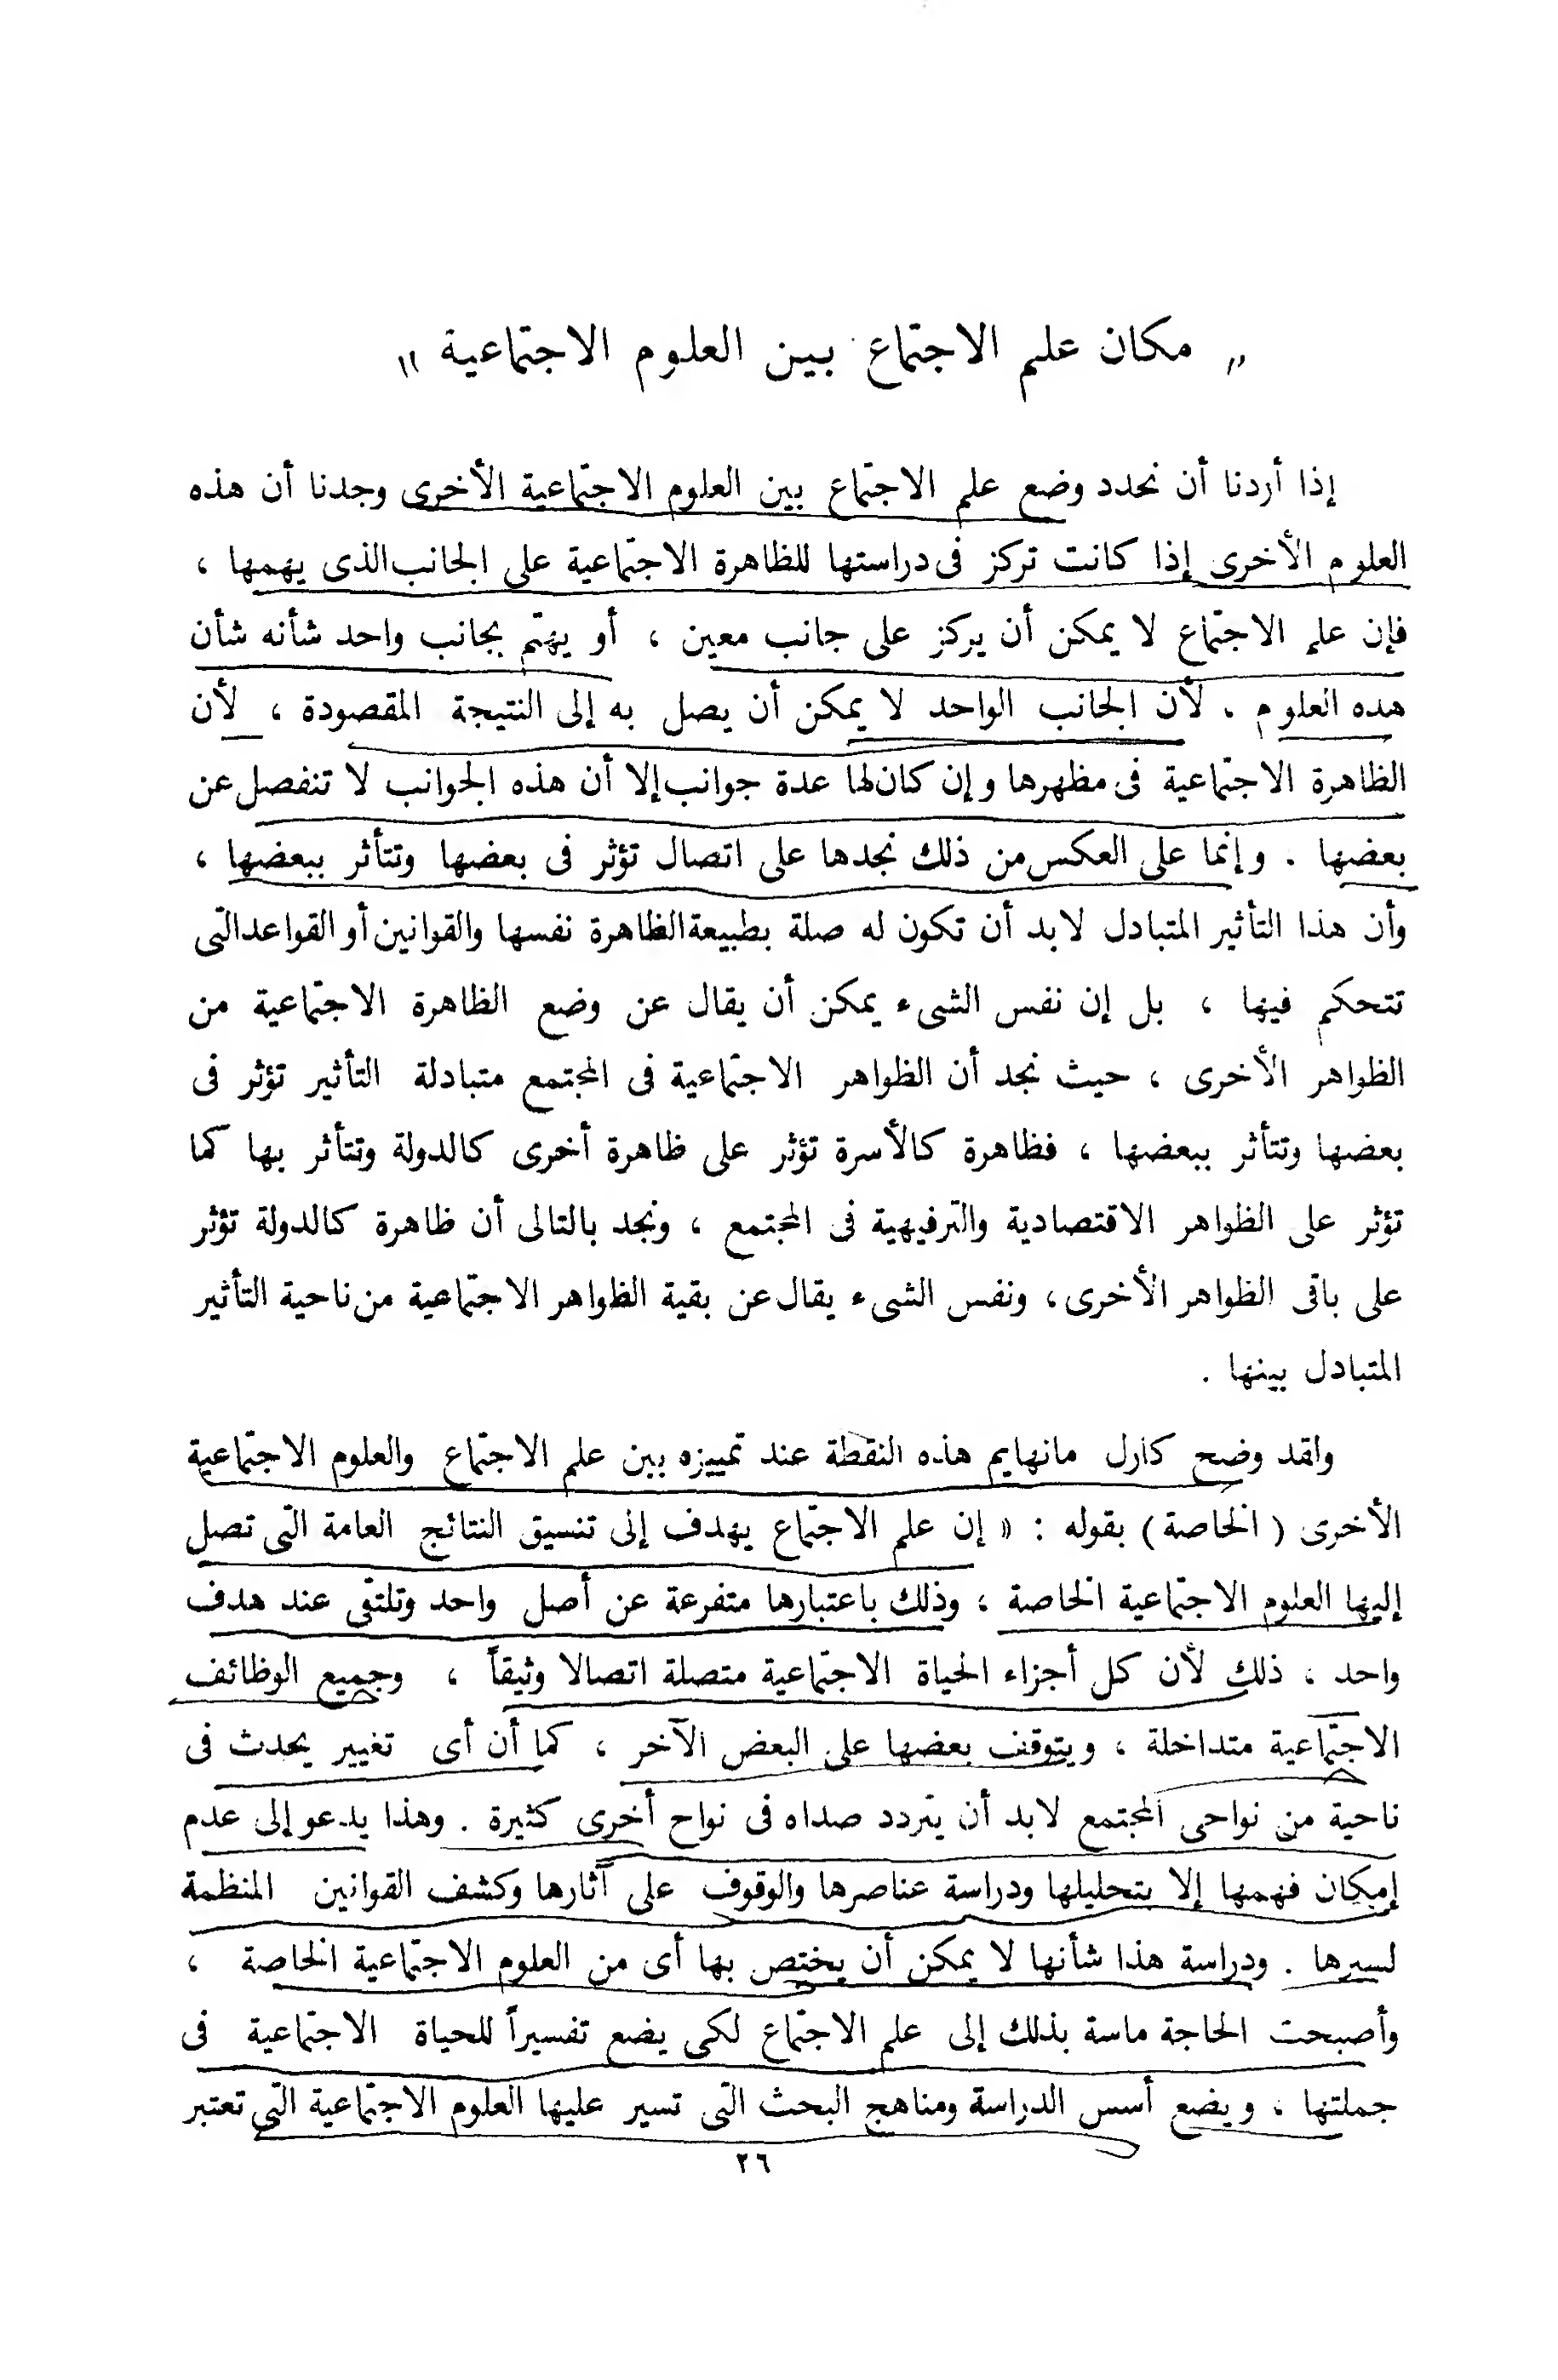 „ مكان علم الاجتماع بين العلوم الاجتماعية "
إذا أردنا أن نحدد وضع علم الاجتماع بين العلوم الاجتماعية الأخرى وجدنا أن هذه
العلوم الأخرى إذا كانت تركز فى دراستها للظاهرة الاجتماعية على الجانب الذى يهمها ،
فإن علم الاجتماع لا يمكن أن يركز على جانب معين ، أو يهتم بجانب واحد شأنه شأن
هده العلوم . لأن الجانب الواحد لا يمكن أن يصل به إلى النتيجة المقصودة ، لأن
الظاهرة الاجتماعية فى مظهرها وإن كان لها عدة جوانب إلا أن هذه الجوانب لا تنفصل عن
بعضها . وإنما على العكس من ذلك نجدها على اتصال تؤثر فى بعضها وتتأثر ببعضها ،
وأن هذا التأثير المتبادل لابد أن تكون له صلة بطبيعة الظاهرة نفسها والقوانين أو القواعد التى
تتحكم فيها ، بل إن نفس الشىء يمكن أن يقال عن وضع الظاهرة الاجتماعية من
الظواهر الأخرى ، حيث نجد أن الظواهر الاجتماعية فى المجتمع متبادلة التأثير تؤثر فى
بعضها وتتأثر ببعضها ، فظاهرة كالأسرة تؤثر على ظاهرة أخرى كالدولة وتتأثر بها كما
تؤثر على الظواهر الاقتصادية والترفيهية فى المجتمع ، ونجد بالتالى أن ظاهرة كالدولة تؤثر
على باقى الظواهر الأخرى ، ونفس الشىء يقال عن بقية الظواهر الاجتماعية من ناحية التأثير
المتبادل بينها .
ولقد وضح كارل مانهايم هذه النقطة عند تمييزه بين علم الاجتماع والعلوم الاجتماعية
الأخرى ( الخاصة ) بقوله : « إن علم الاجتماع يهدف إلى تنسيق النتائج العامة التى تصل
إليها العلوم الاجتماعية الخاصة ، وذلك باعتبارها متفرعة عن أصل واحد وتلتقى عند هدف
واحد ، ذلك لأن كل أجزاء الحياة الاجتماعية متصلة اتصالا وثيقاً ، وجميع الوظائف
الاجتماعية متداخلة ، ويتوقف بعضها على البعض الآخر ، كما أن أى تغيير يحدث فى
ناحية من نواحى المجتمع لابد أن يتردد صداه فى نواح أخرى كثيرة . وهذا يدعو إلى عدم
إمكان فهمها إلا بتحليلها ودراسة عناصرها والوقوف على آثارها وكشف القوانين المنظمة
لسيرها . ودراسة هذا شأنها لا يمكن أن يختص بها أى من العلوم الاجتماعية الخاصة ،
وأصبحت الحاجة ماسة بذلك إلى علم الاجتماع لكى يضع تفسيراً للحياة الاجتماعية فى
جملتها ، ويضع أسس الدراسة ومناهج البحث التى تسير عليها العلوم الاجتماعية التى تعتبر
٢٦